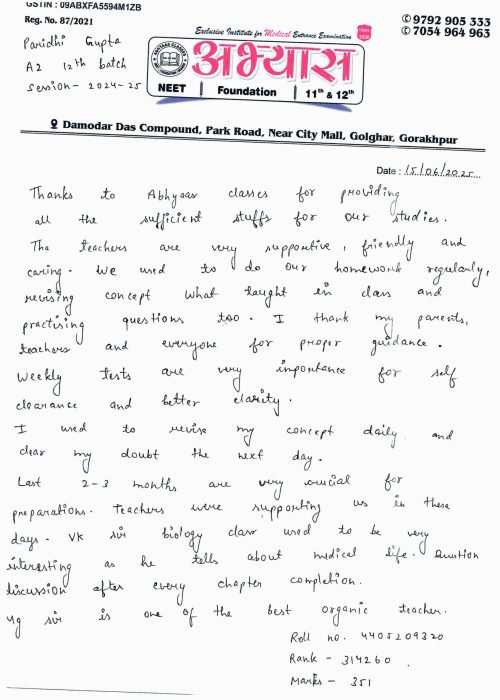 GSTIN : 09ABXFA5594M1ZB
Reg. No. 87/2021
Paridhi Gupta
A2 12th batch
session - 2024-25
Exclusive Institute for Medical Entrance Examination
अभ्यास
NEET Foundation 11th & 12th
9792 905 333
7054 964 963
Damodar Das Compound, Park Road, Near City Mall, Golghar, Gorakhpur
Date : 15/06/2025
Thanks to Abhyaas classes for providing
all the sufficient stuffs for our studies.
The teachers are very supportive, friendly and
caring. We used to do our homework regularly,
revising concept what taught in class and
practising questions too. I thank my parents,
teachers and everyone for proper guidance.
Weekly tests are very importance for self
clearance and better clarity.
I used to revise my concept daily and
clear my doubt the next day.
Last 2-3 months are very crucial for
preparations. Teachers were supporting us in these
days. VK sir biology class used to be very
interesting as he tells about medical life. Question
discussion after every chapter completion.
Yg sir is one of the best organic teacher.
Roll no. 4405209320
Rank - 314260.
Marks - 351